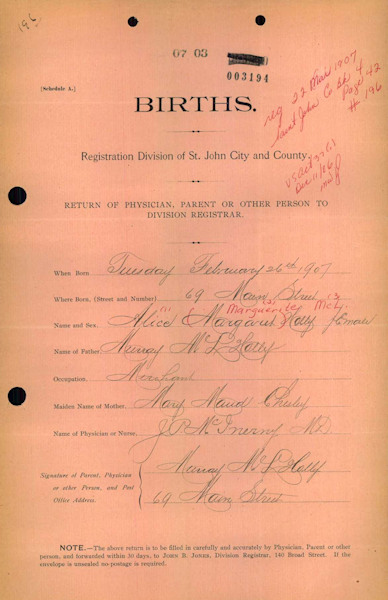 196
07 03
003194
[Schedule A.]
reg 22 Mar 1907
Saint John Co Bk 4
Page 42
# 196
BIRTHS.
Registration Division of St. John City and County.
Dec 11/86
RETURN OF PHYSICIAN, PARENT OR OTHER PERSON TO
DIVISION REGISTRAR.
When Born Tuesday February 26th 1907
Where Born, (Street and Number) 69 Main Street
(1) Marguerite (2)
Name and Sex. Alice Margaret Holly Female
Name of Father, Murray McL Holly
Occupation. Merchant
Maiden Name of Mother, Mary Maud Chesley
Name of Physician or Nurse, J P McInerny MD
Signature of Parent, Physician
or other Person, and Post
Office Address.
Murray McL Holly
69 Main Street
NOTE.—The above return is to be filled in carefully and accurately by Physician, Parent or other
person, and forwarded within 30 days, to JOHN B. JONES, Division Registrar, 140 Broad Street. If
the envelope is unsealed no postage is required.